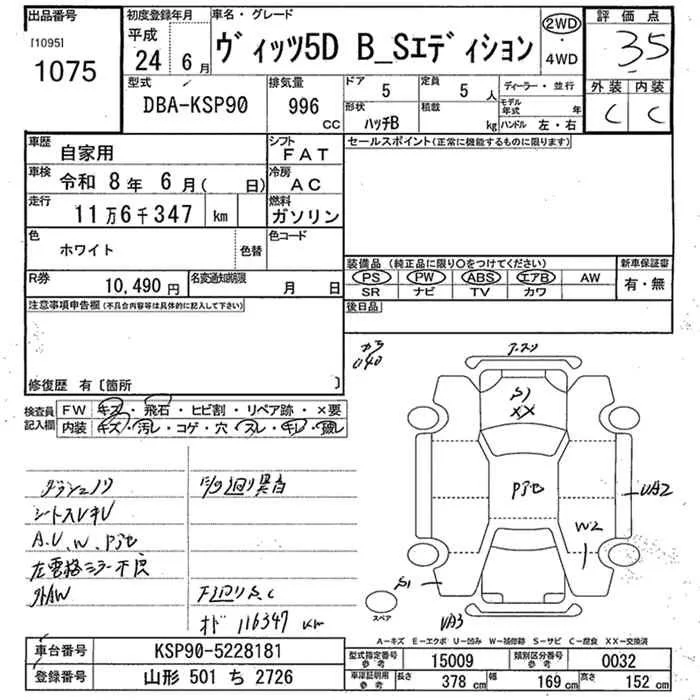 出品番号
[1095]
1075
初度登録年月
平成
24 6月
車名・グレード
ヴィッツ5D B_Sエディション
2WD
・
4WD
評価点
35
外装 内装
C C
型式
DBA-KSP90
排気量
996
CC
ドア
5
定員
5 人
形状
ハッチB
積載
kg
ディーラー・並行
モデル年式 年
ハンドル 左・右
車歴
自家用
シフト
FAT
車検
令和 8年 6月( 日)
冷房
AC
走行
11万6千347 km
燃料
ガソリン
色
ホワイト
色替
色コード
R券
10,490円
名変通知期限
月 日
セールスポイント(正常に機能するものに限ります)
装備品(純正品に限り○をつけてください)
PS PW ABS エアB AW
SR ナビ TV カワ
新車保証書
有・無
後日品
注意事項申告欄(不具合内容等は具体的に記入して下さい)
修復歴 有〔箇所 〕
検査員
記入欄
FW キズ・飛石・ヒビ割・リペア跡・×要
内装 キズ・汚レ・コゲ・穴・スレ・キレ・破レ
カラ
040
S1
XX
UA2
W2
S1
UA3
スペア
シートスレキレ
A.U.W.P
左電格ミラー不良
外AW
下回りS.C
オド 116347 km
A-キズ E-エクボ U-凹み W-補修跡 S-サビ C-腐食 XX-交換済
車台番号
KSP90-5228181
登録番号
山形 501 ち 2726
型式指定番号
参考
15009
類別区分番号
参考
0032
車庫証明用
参考
長さ 378 cm
幅 169 cm
高さ 152 cm